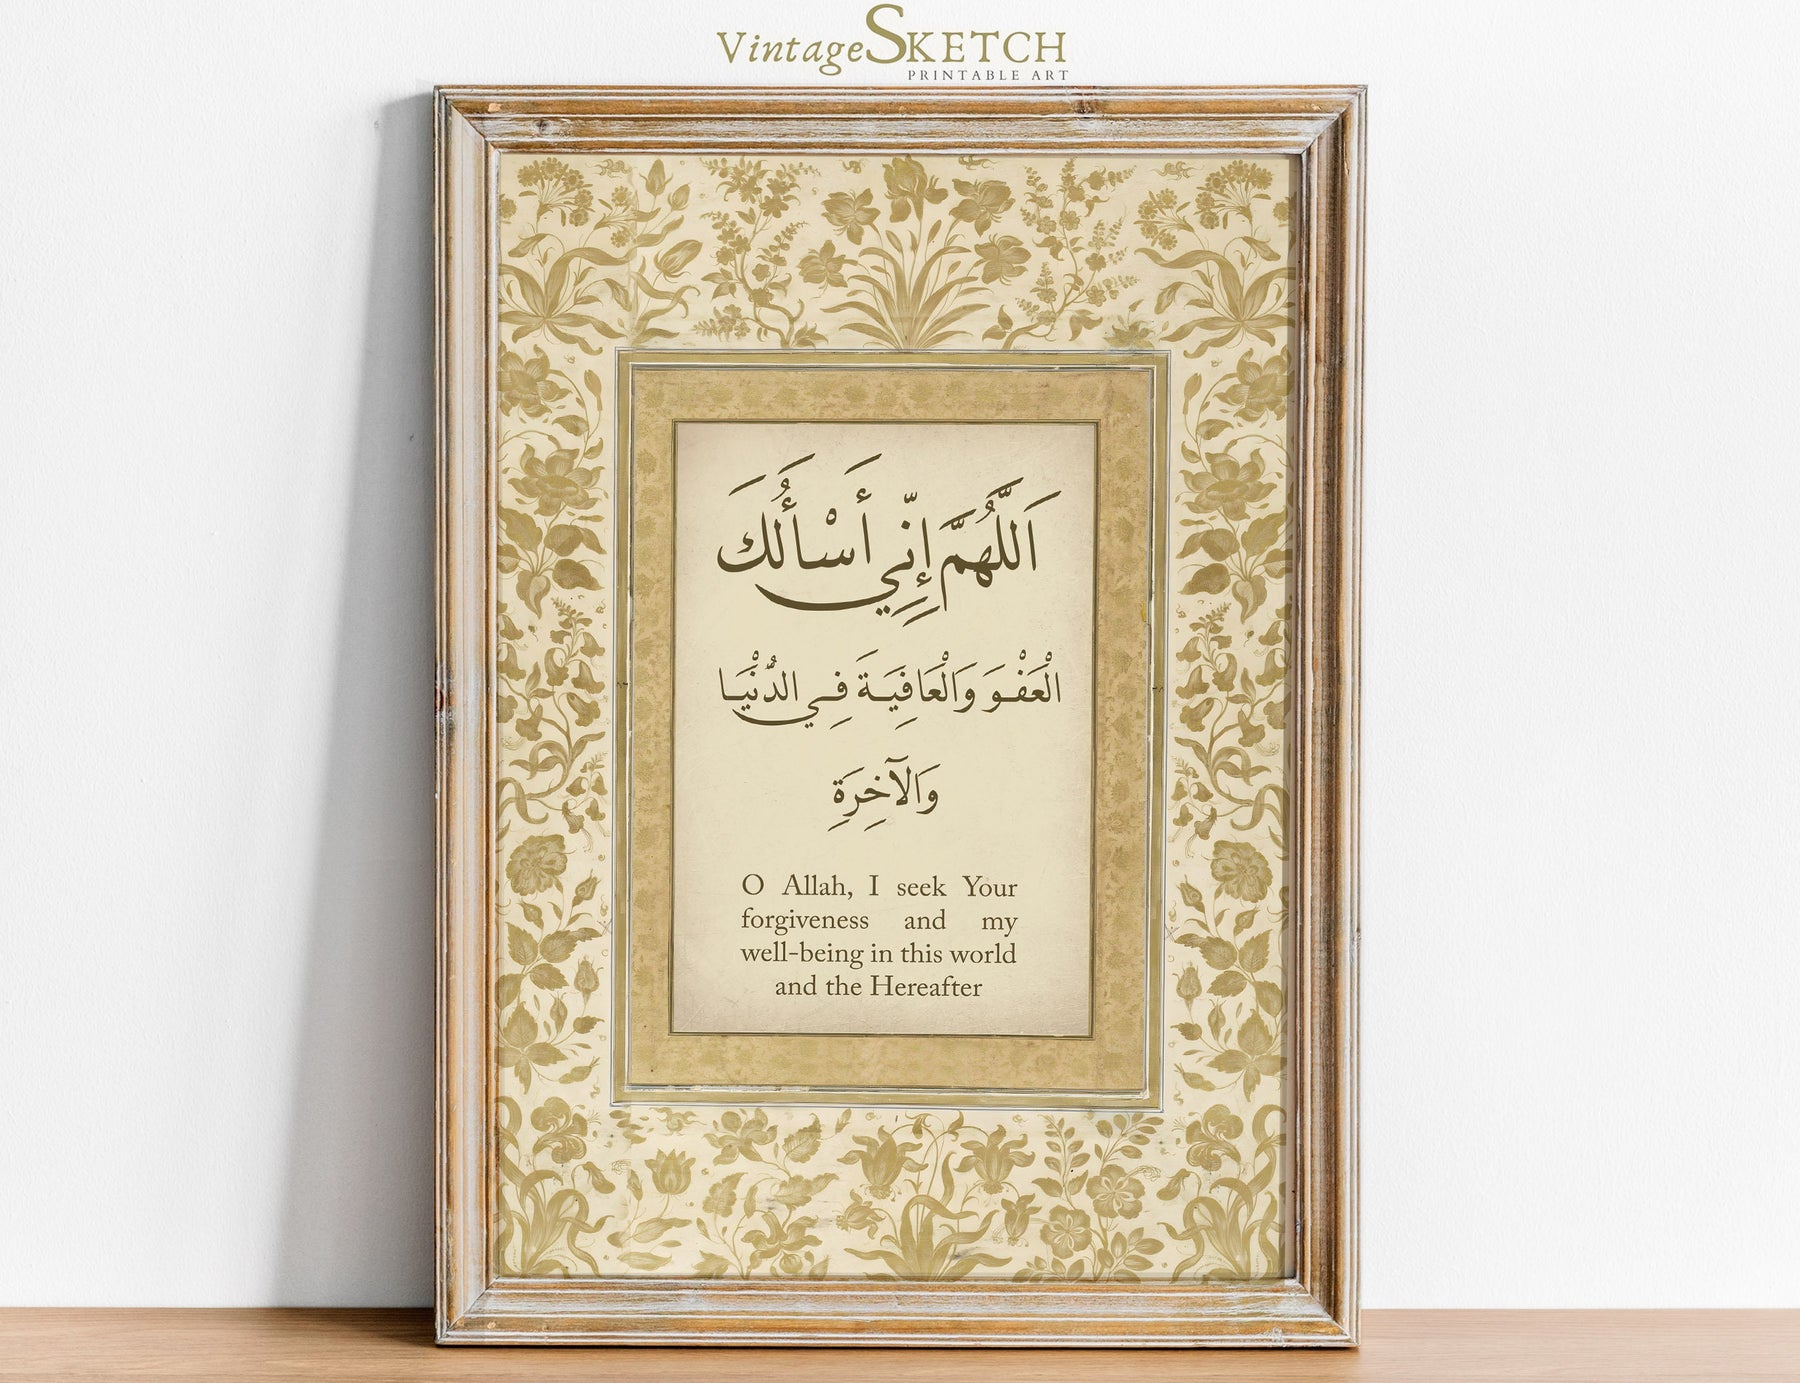 VintageSKETCH
PRINTABLE ART
اَللَّهُمَّ إِنِّي أَسْأَلُكَ
الْعَفْوَ وَالْعَافِيَةَ فِي الدُّنْيَا
وَالْآخِرَةِ
O Allah, I seek Your
forgiveness and my
well-being in this world
and the Hereafter